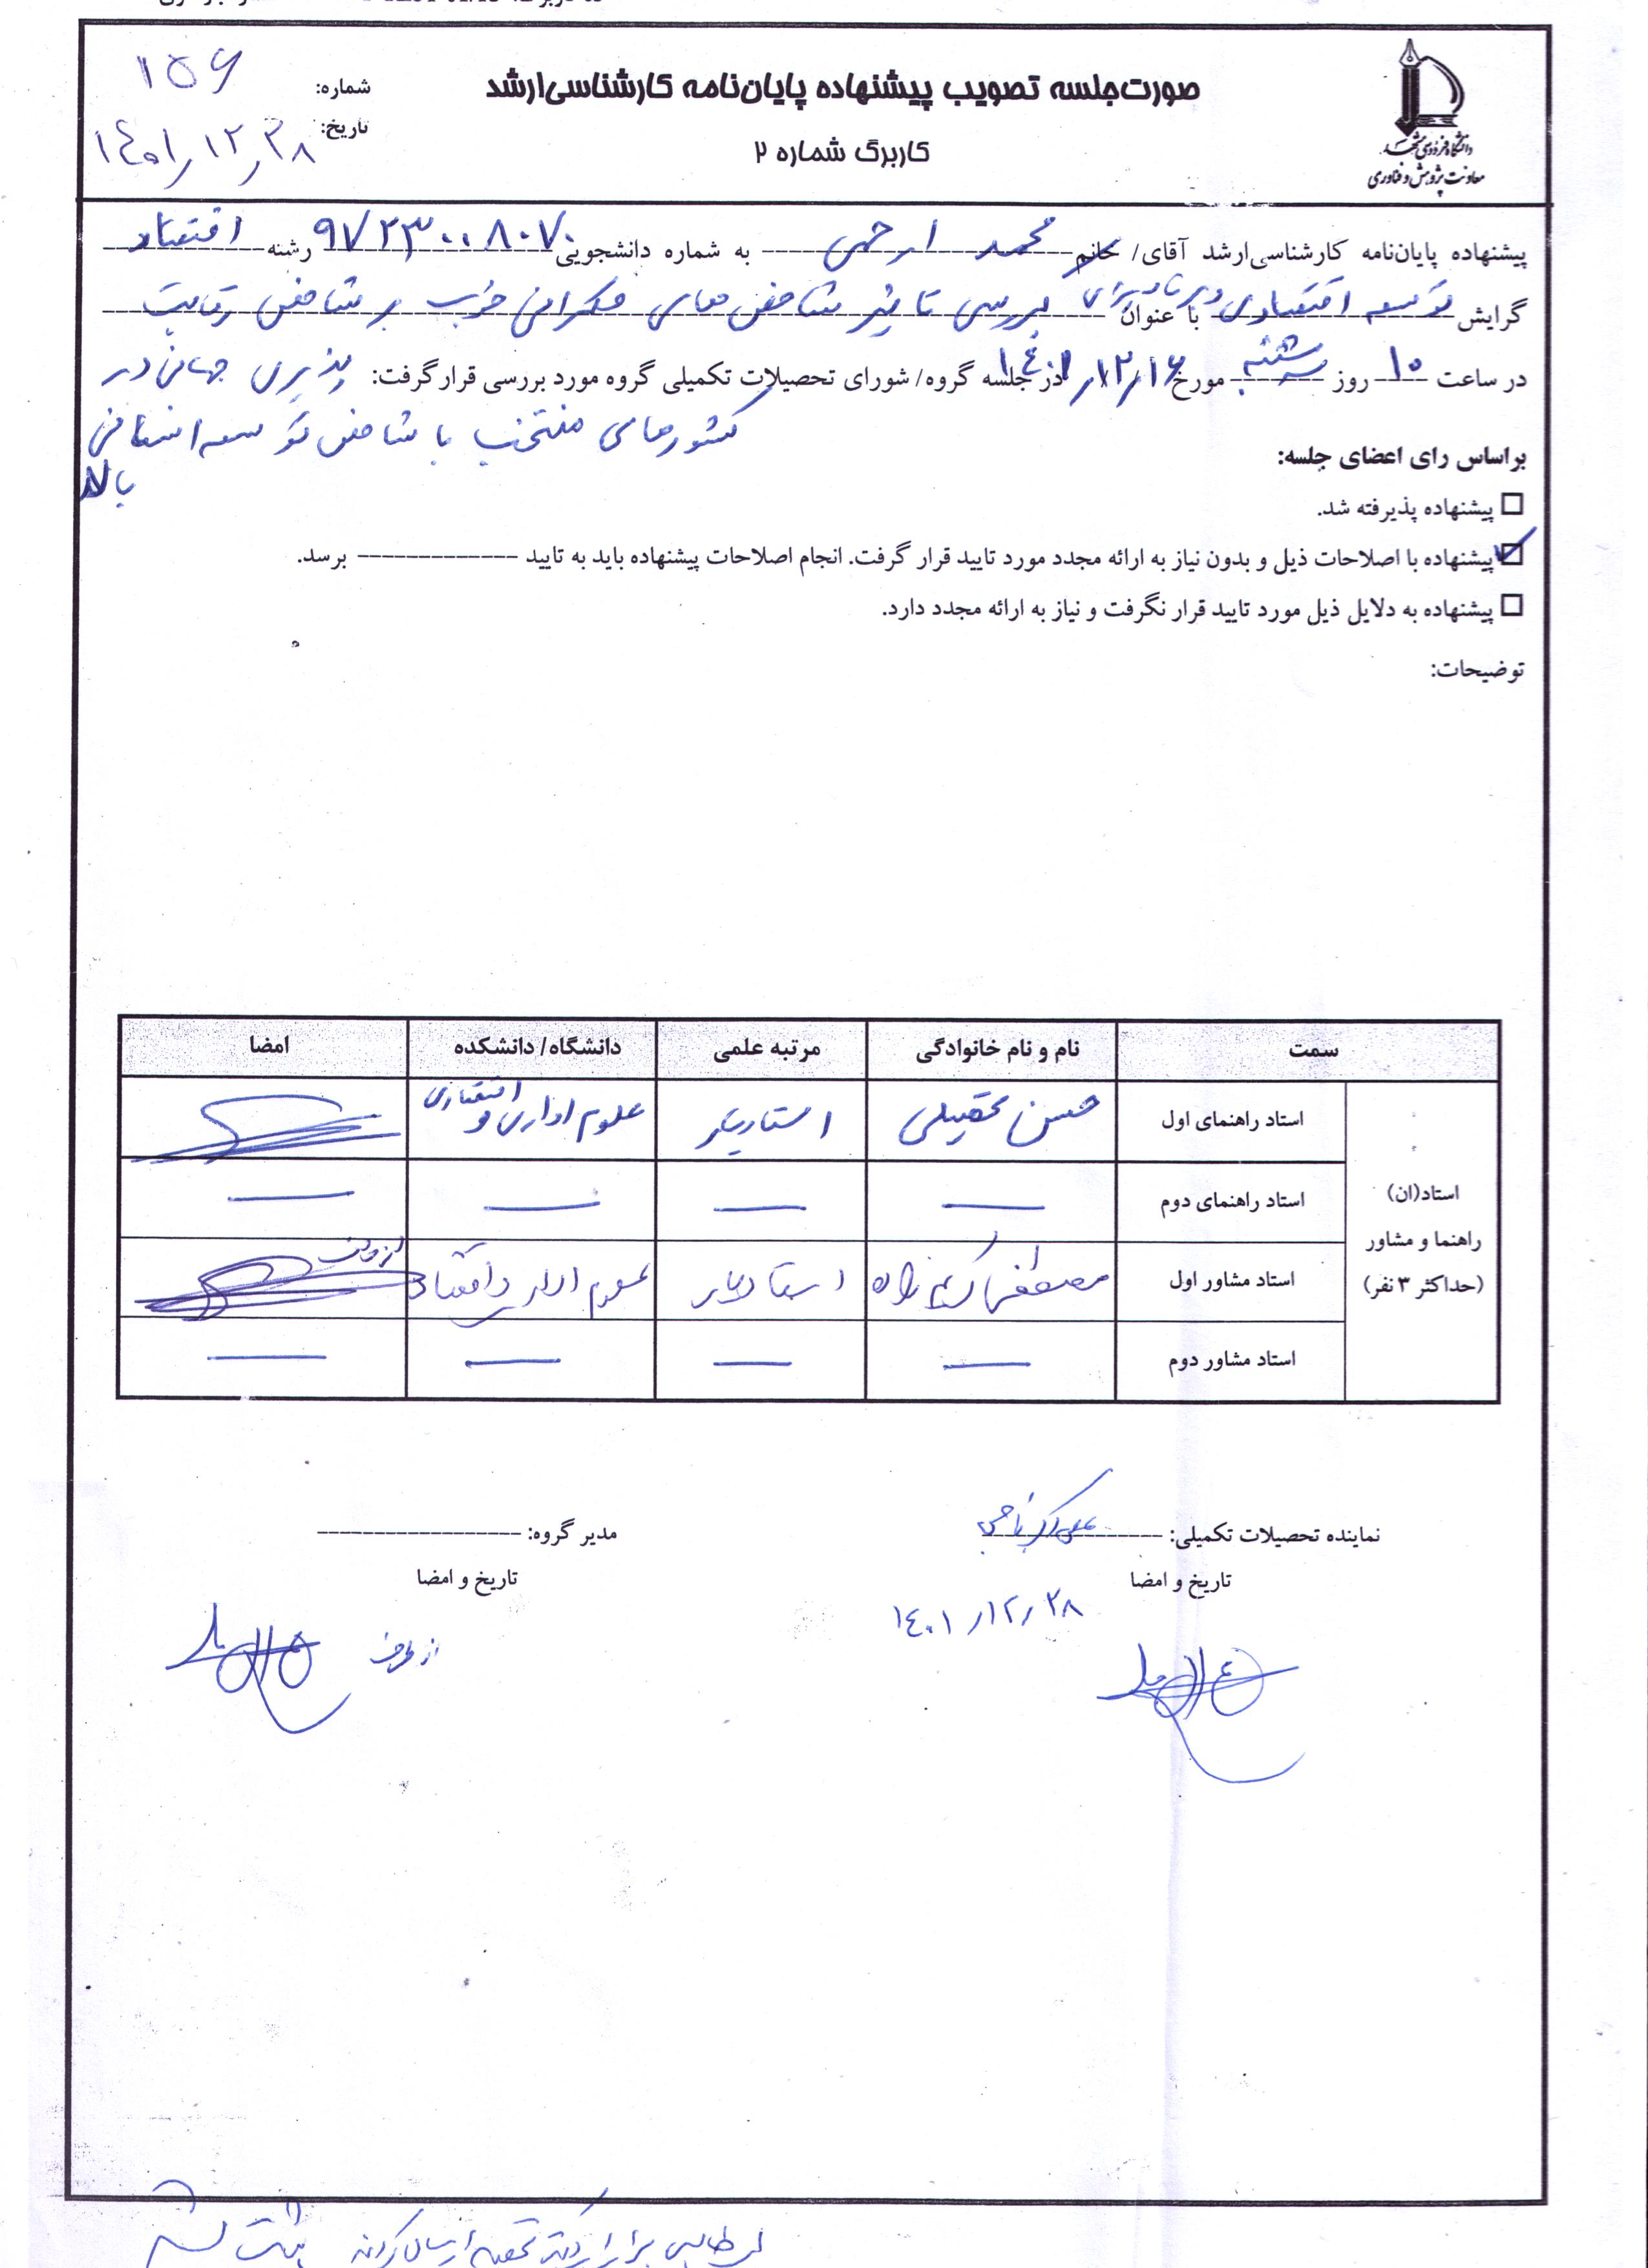 صورت‌جلسه تصویب پیشنهاده پایان‌نامه کارشناسی‌ارشد
کاربرگ شماره ۲
شماره: ۱۵۶
تاریخ: ۱۴۰۱٫۱۲٫۲۸
دانشگاه فردوسی مشهد
معاونت پژوهش و فناوری
پیشنهاده پایان‌نامه کارشناسی‌ارشد آقای/ خانم محمد به شماره دانشجویی ۹۷۲۳۰۰۸۰۷۰ رشته اقتصاد
گرایش توسعه اقتصادی و برنامه ریزی با عنوان بررسی تاثیر شاخص های حکمرانی خوب بر شاخص رقابت
در ساعت ۱۰ روز سه شنبه مورخ ۱۴۰۱٫۱۲٫۱۶ در جلسه گروه/ شورای تحصیلات تکمیلی گروه مورد بررسی قرار گرفت: پذیری جهانی در
کشورهای منتخب با شاخص توسعه انسانی
بالا
براساس رای اعضای جلسه:
پیشنهاده پذیرفته شد.
پیشنهاده با اصلاحات ذیل و بدون نیاز به ارائه مجدد مورد تایید قرار گرفت. انجام اصلاحات پیشنهاده باید به تایید ------------- برسد.
پیشنهاده به دلایل ذیل مورد تایید قرار نگرفت و نیاز به ارائه مجدد دارد.
توضیحات:
سمت نام و نام خانوادگی مرتبه علمی دانشگاه/ دانشکده امضا
استاد(ان) راهنما و مشاور (حداکثر ۳ نفر)
استاد راهنمای اول حسن تحصیلی استادیار علوم اداری و اقتصادی
استاد راهنمای دوم — — — —
استاد مشاور اول مصطفی کریم زاده استادیار علوم اداری و اقتصاد از طرف
استاد مشاور دوم — — — —
نماینده تحصیلات تکمیلی: علی اکبر ناجی
مدیر گروه: -----------------
تاریخ و امضا
تاریخ و امضا
۱۴۰۱٫۱۲٫۲۸
از طرف